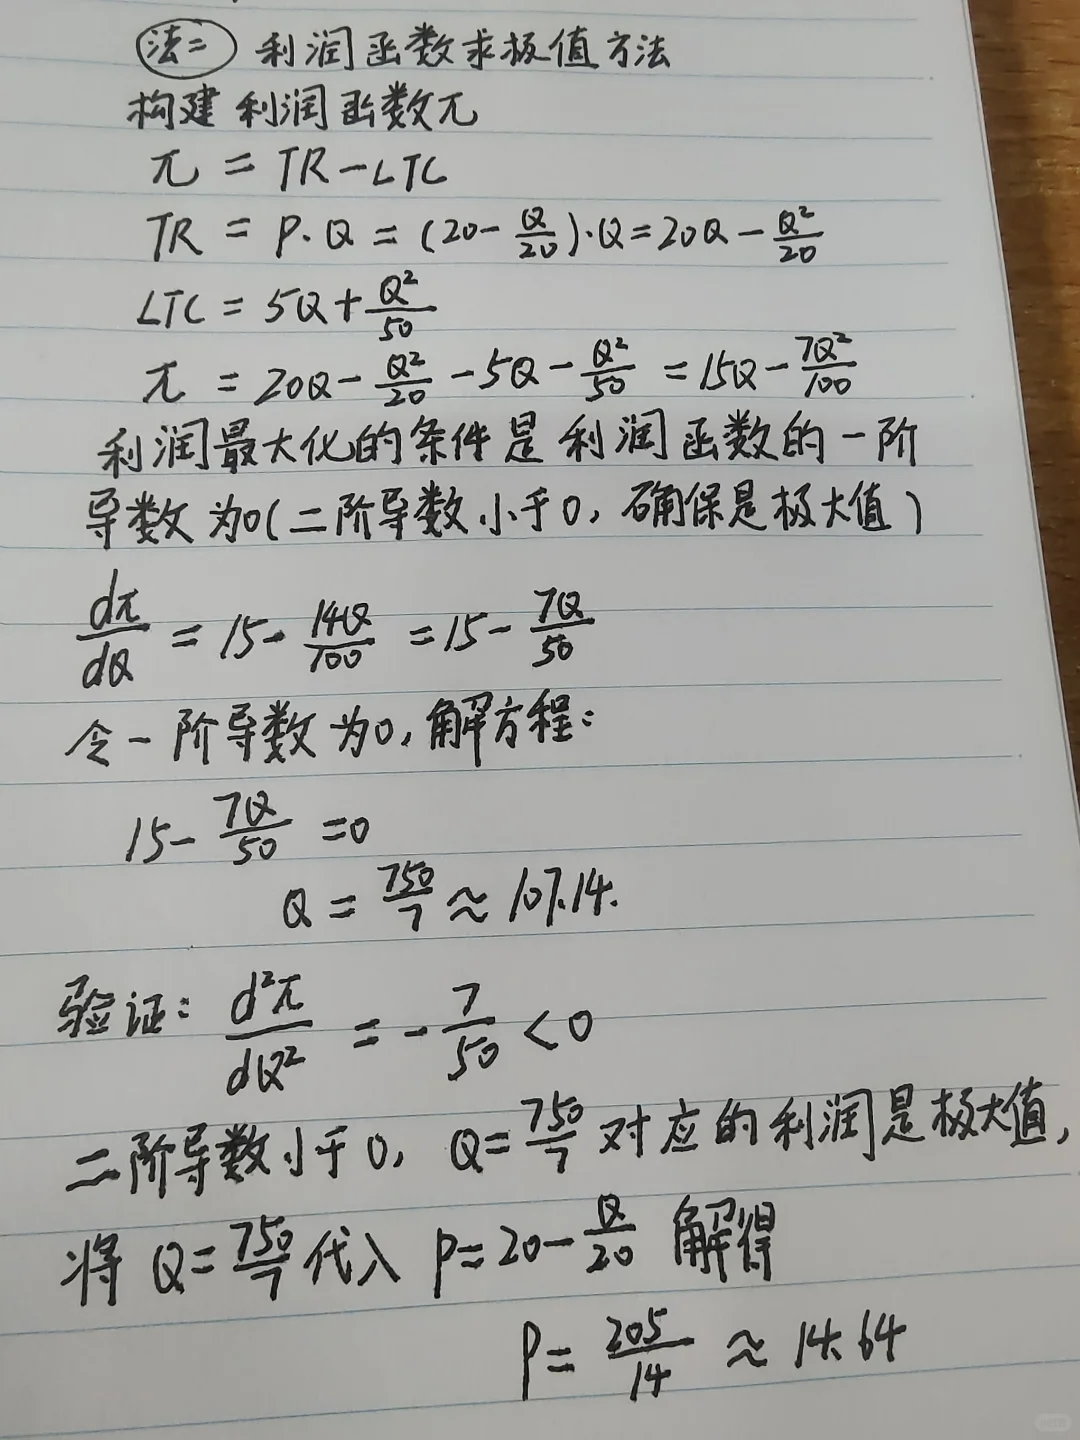 法二 利润函数求极值方法
构建利润函数π
π = TR-LTC
TR = P·Q = (20-Q/20)·Q=20Q-Q²/20
LTC = 5Q+Q²/50
π = 20Q-Q²/20-5Q-Q²/50 =15Q-7Q²/100
利润最大化的条件是利润函数的一阶
导数为0(二阶导数小于0,确保是极大值)
dπ/dQ = 15-14Q/100 =15-7Q/50
令一阶导数为0,解方程:
15-7Q/50=0
Q = 750/7 ≈ 107.14.
验证: d²π/dQ² = -7/50<0
二阶导数小于0, Q=750/7对应的利润是极大值,
将 Q=750/7代入 P=20-Q/20 解得
P= 205/14 ≈ 14.64